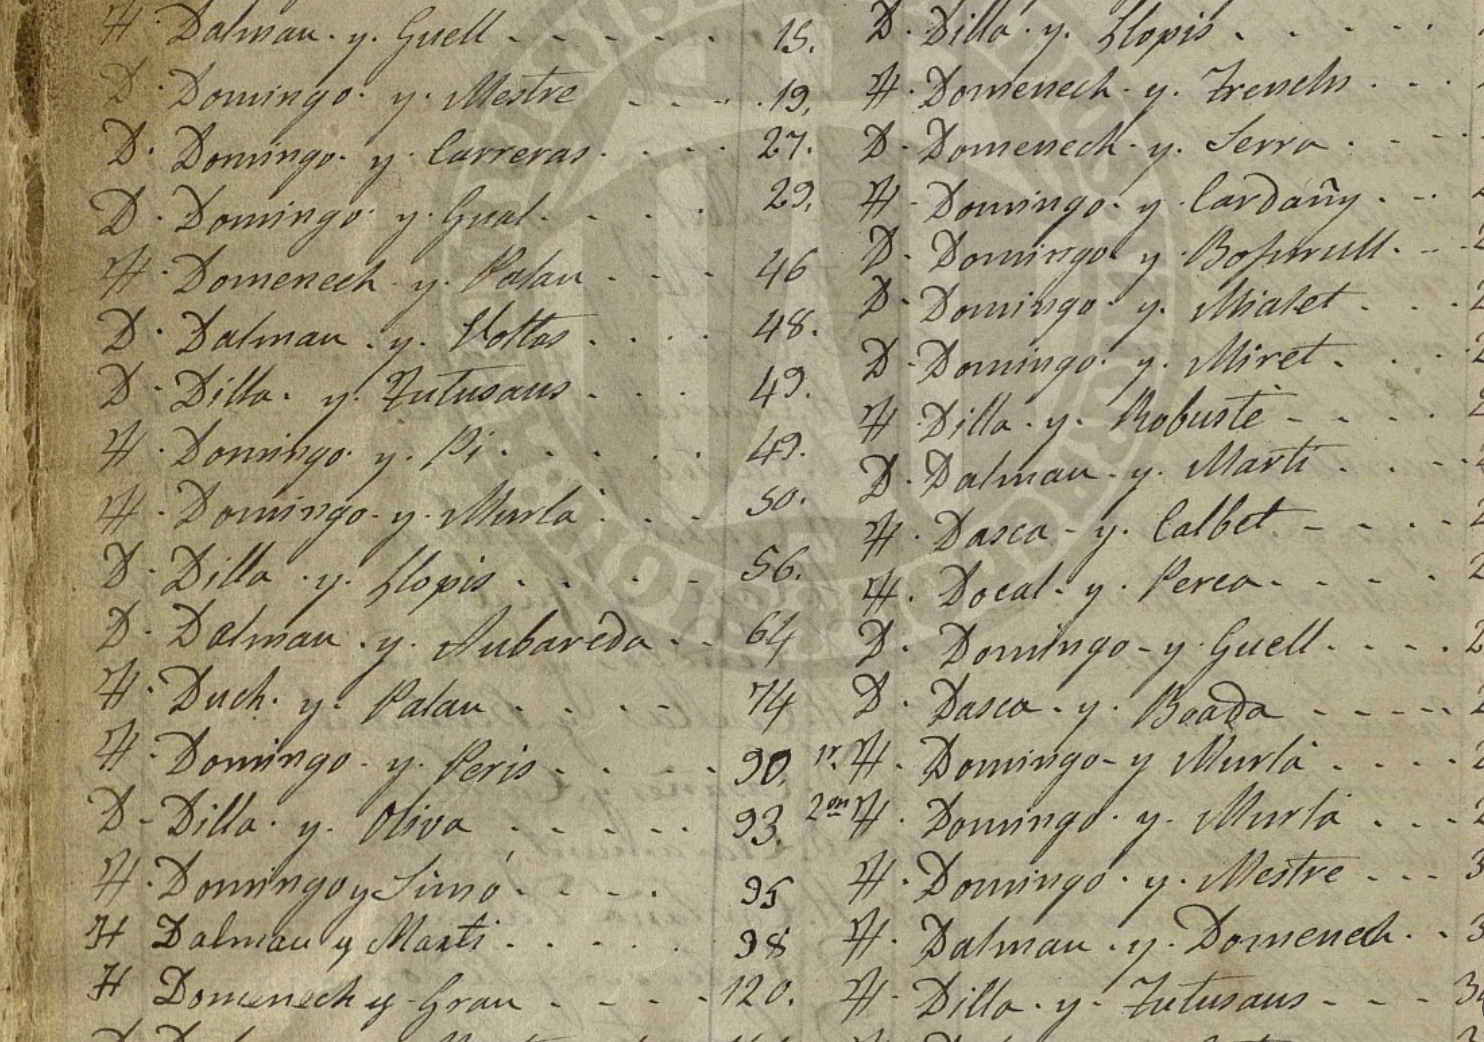 H. Dalmau. y. Guell - - - - - - 15.
D. Domingo. y. Mestre - - - - 19.
D. Domingo. y Carreras. - - - - 27.
D. Domingo. y. Gual. - - - - 29.
H. Domenech. y. Palau - - - - 46
D. Dalmau. y. Voltas - - - - 48.
D. Dilla. y. Tutusaus - - - - 49.
H. Domingo. y. Pi. - - - - - 49.
H. Domingo. y. Murlá. - - - 50.
D. Dilla. y. Llopis - - - - - 56.
D. Dalmau. y. Aubareda - - 64
H. Duch. y. Palau - - - - 74
H. Domingo. y. Peris - - - - 90.
D. Dilla. y. Oliva - - - - - 93.
H. Domingo y Simó - - - - 95
H Dalmau y Marti - - - - - 98
H Domenech y Grau - - - - 120.
D. Dilla. y. Llopis - - - - -
H. Domenech. y. Trenchs - - -
D. Domenech. y. Serra. - - -
H. Domingo. y Cardañy. - -
D. Domingo y. Bofarull. - - 2
D. Domingo. y. Mialet - - - 2
D. Domingo. y. Miret. - - - 2
H. Dilla. y. Robusté - - - - 2
D. Dalmau. y. Marti - - - - 2
H. Dasca - y. Calbet - - - - 2
H. Docal. y. Perea. - - - - 2
D. Domingo - y. Guell. - - - - 2
D. Dasca - y. Boada - - - - - 2
1r. H. Domingo - y Murlá - - - - 2
2on H. Domingo. y. Murlá - - - 2
H. Domingo. y. Mestre - - - 3
H. Dalmau. y. Domenech. - 3
H. Dilla. y. Tutusaus - - - 3